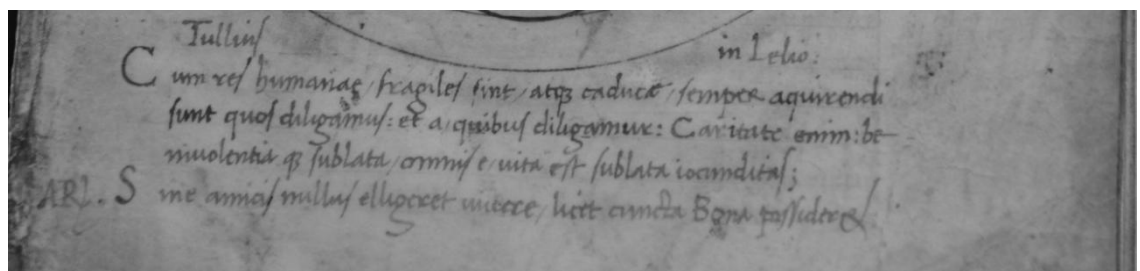 Tullius in Lelio:
Cum res humanae, fragiles sint, atq; caducæ, semper aquirendi
sunt quos diligamus: et a, quibus diligamur: Caritate enim: be-
nivolentia q; sublata, omnis e, vita est sublata iocunditas;
ARI. Sine amicis nullus elligeret vivere, licet cuncta Bona possideret